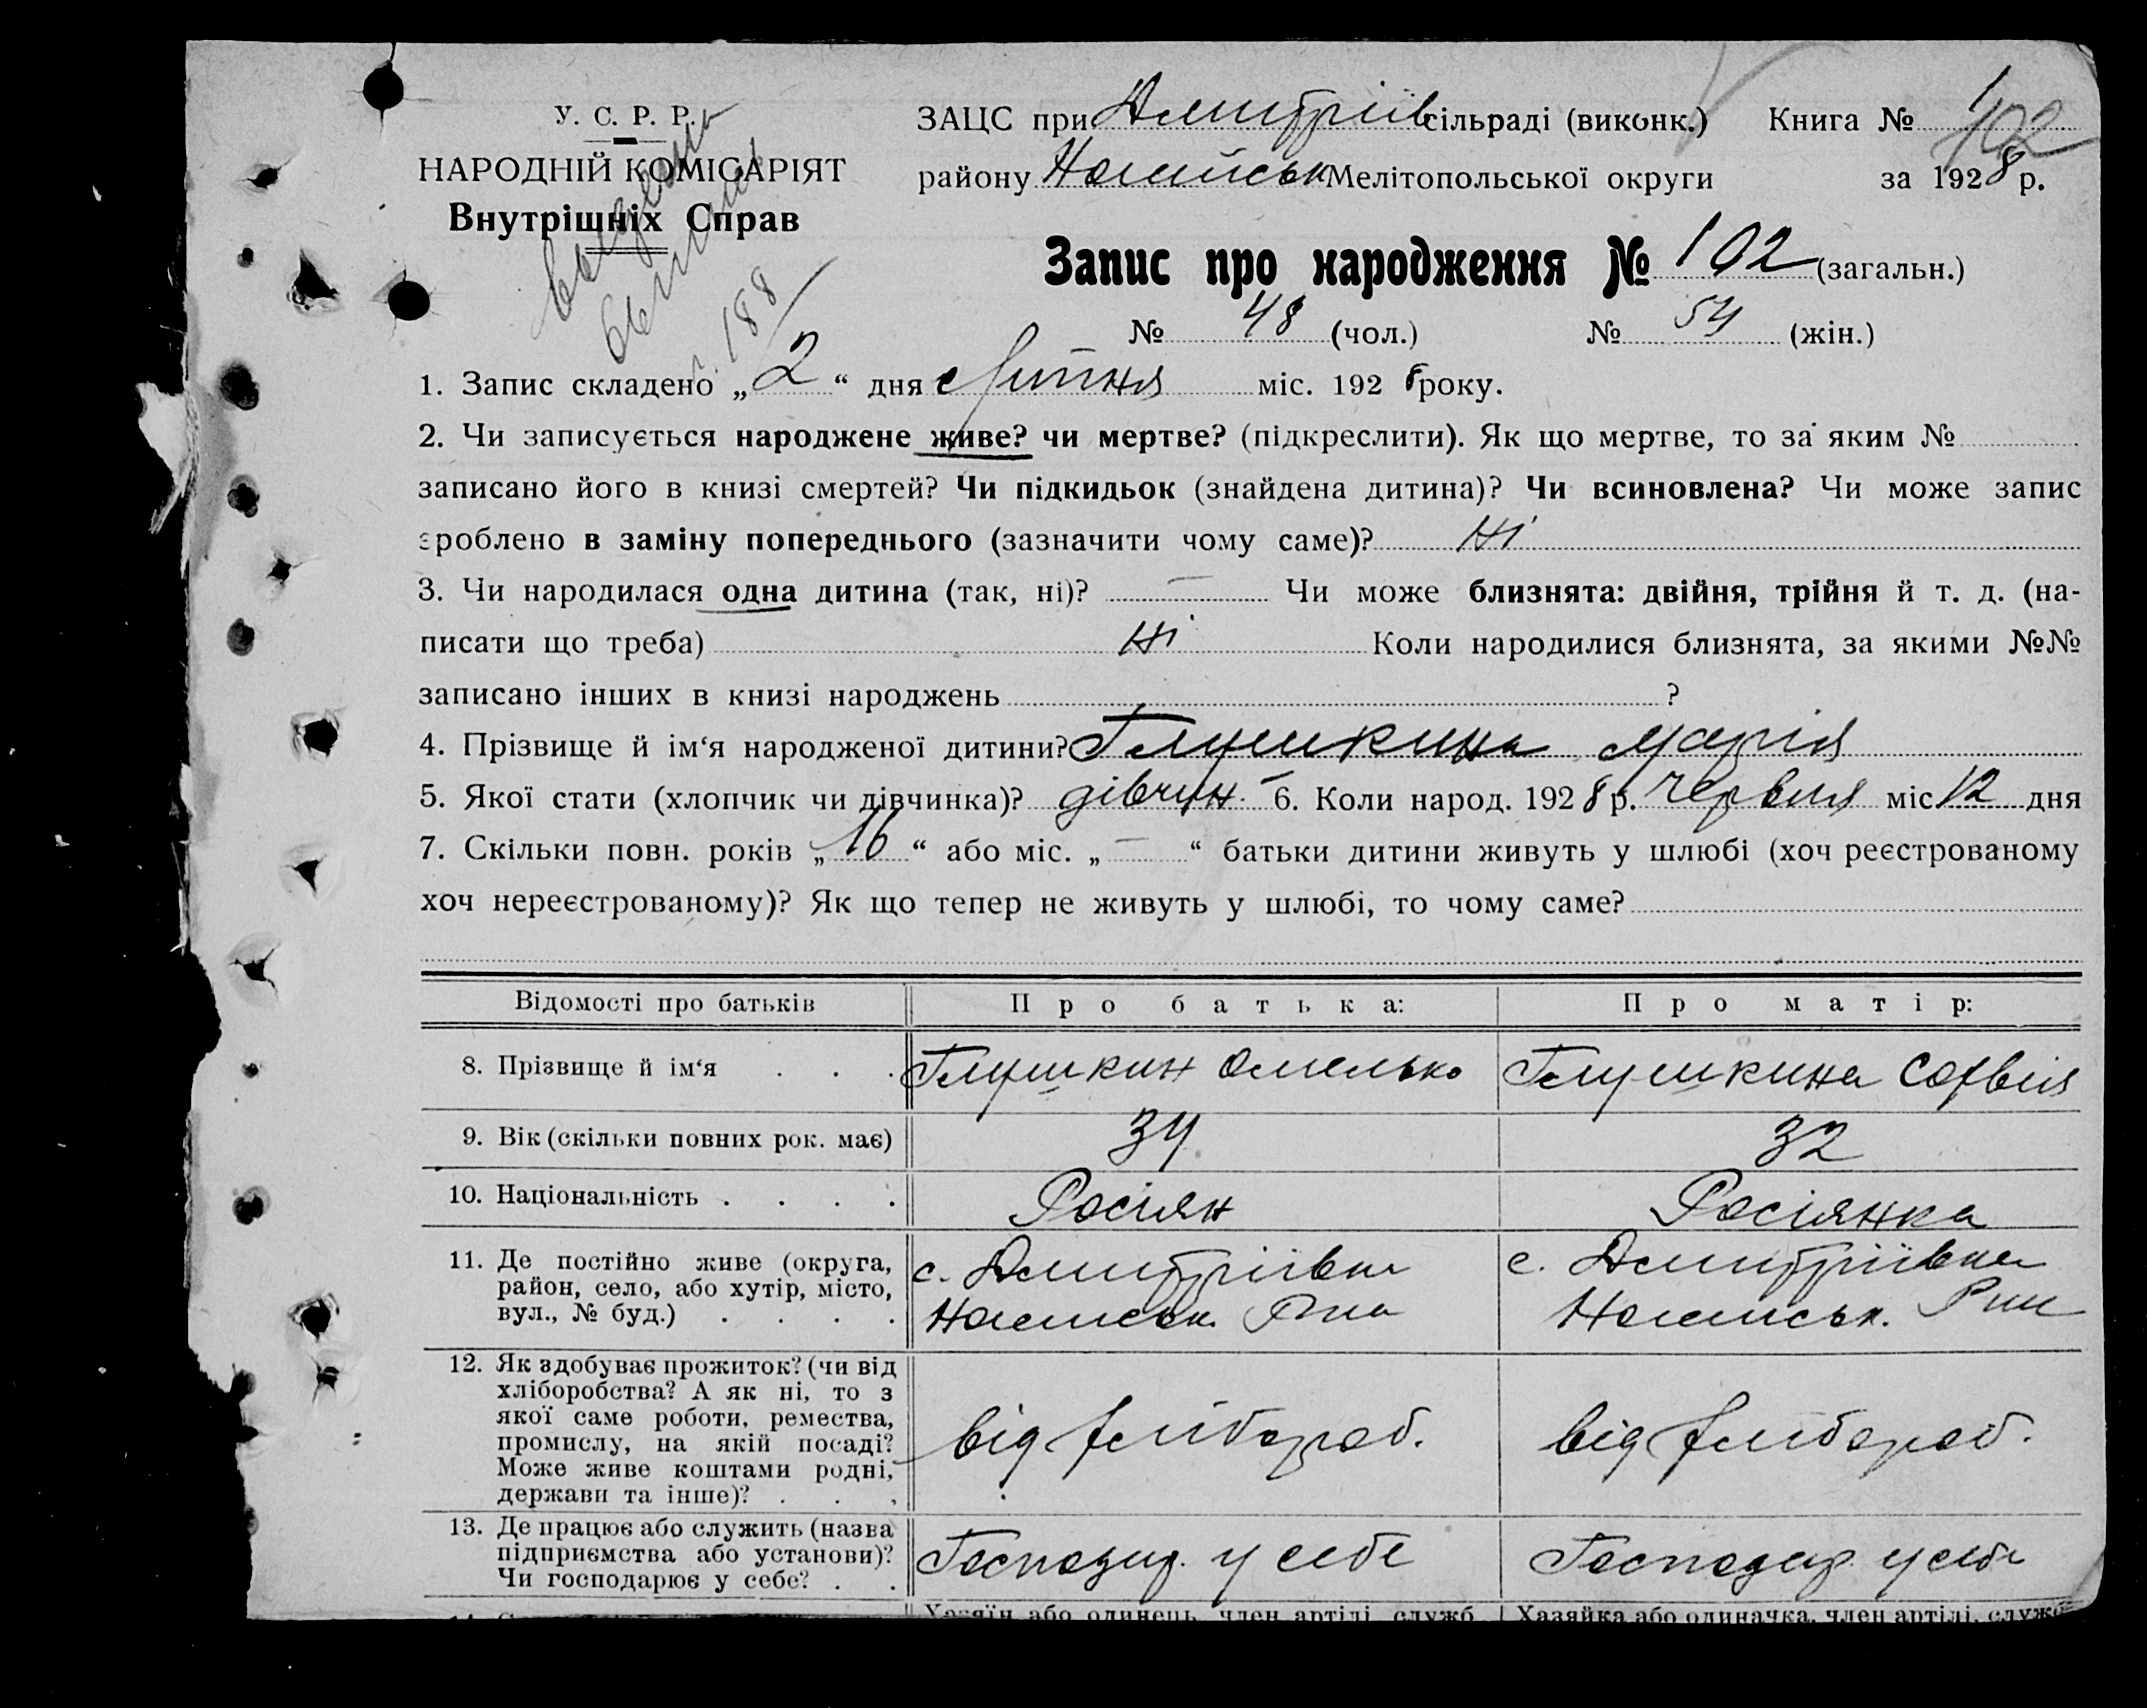 У. С. Р. Р.
НАРОДНІЙ КОМІСАРІЯТ
Внутрішніх Справ
ЗАЦС при Дмитріїв сільраді (виконк.) Книга № 1
102
району Ногайськ Мелітопольської округи за 1928 р.
Запис про народження № 102 (загальн.)
№ 48 (чол.) № 54 (жін.)
188
1. Запис складено „ 2 “ дня Липня міс. 1928 року.
2. Чи записується народжене живе? чи мертве? (підкреслити). Як що мертве, то за яким №
записано його в книзі смертей? Чи підкидьок (знайдена дитина)? Чи всиновлена? Чи може запис
зроблено в заміну попереднього (зазначити чому саме)? Ні
3. Чи народилася одна дитина (так, ні)? — Чи може близнята: двійня, трійня й т. д. (на-
писати що треба) Ні Коли народилися близнята, за якими №№
записано інших в книзі народжень ?
4. Прізвище й ім‘я народженої дитини? Глушкина Марія
5. Якої стати (хлопчик чи дівчинка)? дівчин. 6. Коли народ. 1928 р. Червня міс 12 дня
7. Скільки повн. років „ 16 “ або міс. „ — “ батьки дитини живуть у шлюбі (хоч реєстрованому
хоч нереєстрованому)? Як що тепер не живуть у шлюбі, то чому саме?
Відомості про батьків Про батька: Про матір:
8. Прізвище й ім‘я . . . Глушкин Омелько Глушкина Софвія
9. Вік (скільки повних рок. має) 34 32
10. Національність . . . . Росіян Росіянка
11. Де постійно живе (округа,
район, село, або хутір, місто,
вул., № буд.) . . . .
с. Дмитріівка
Ногайськ. Р-на
с. Дмитріївка
Ногайськ. Р-на
12. Як здобуває прожиток? (чи від
хліборобства? А як ні, то з
якої саме роботи, ремества,
промислу, на якій посаді?
Може живе коштами родні,
держави та інше)? . . .
від хлібороб.
від хлібороб.
13. Де працює або служить (назва
підприємства або установи)?
Чи господарює у себе? . .
Господар. у себе
Господар. у себе
Хазяїн або одинець, член артілі, служб Хазяйка або одиначка, член артілі, служб